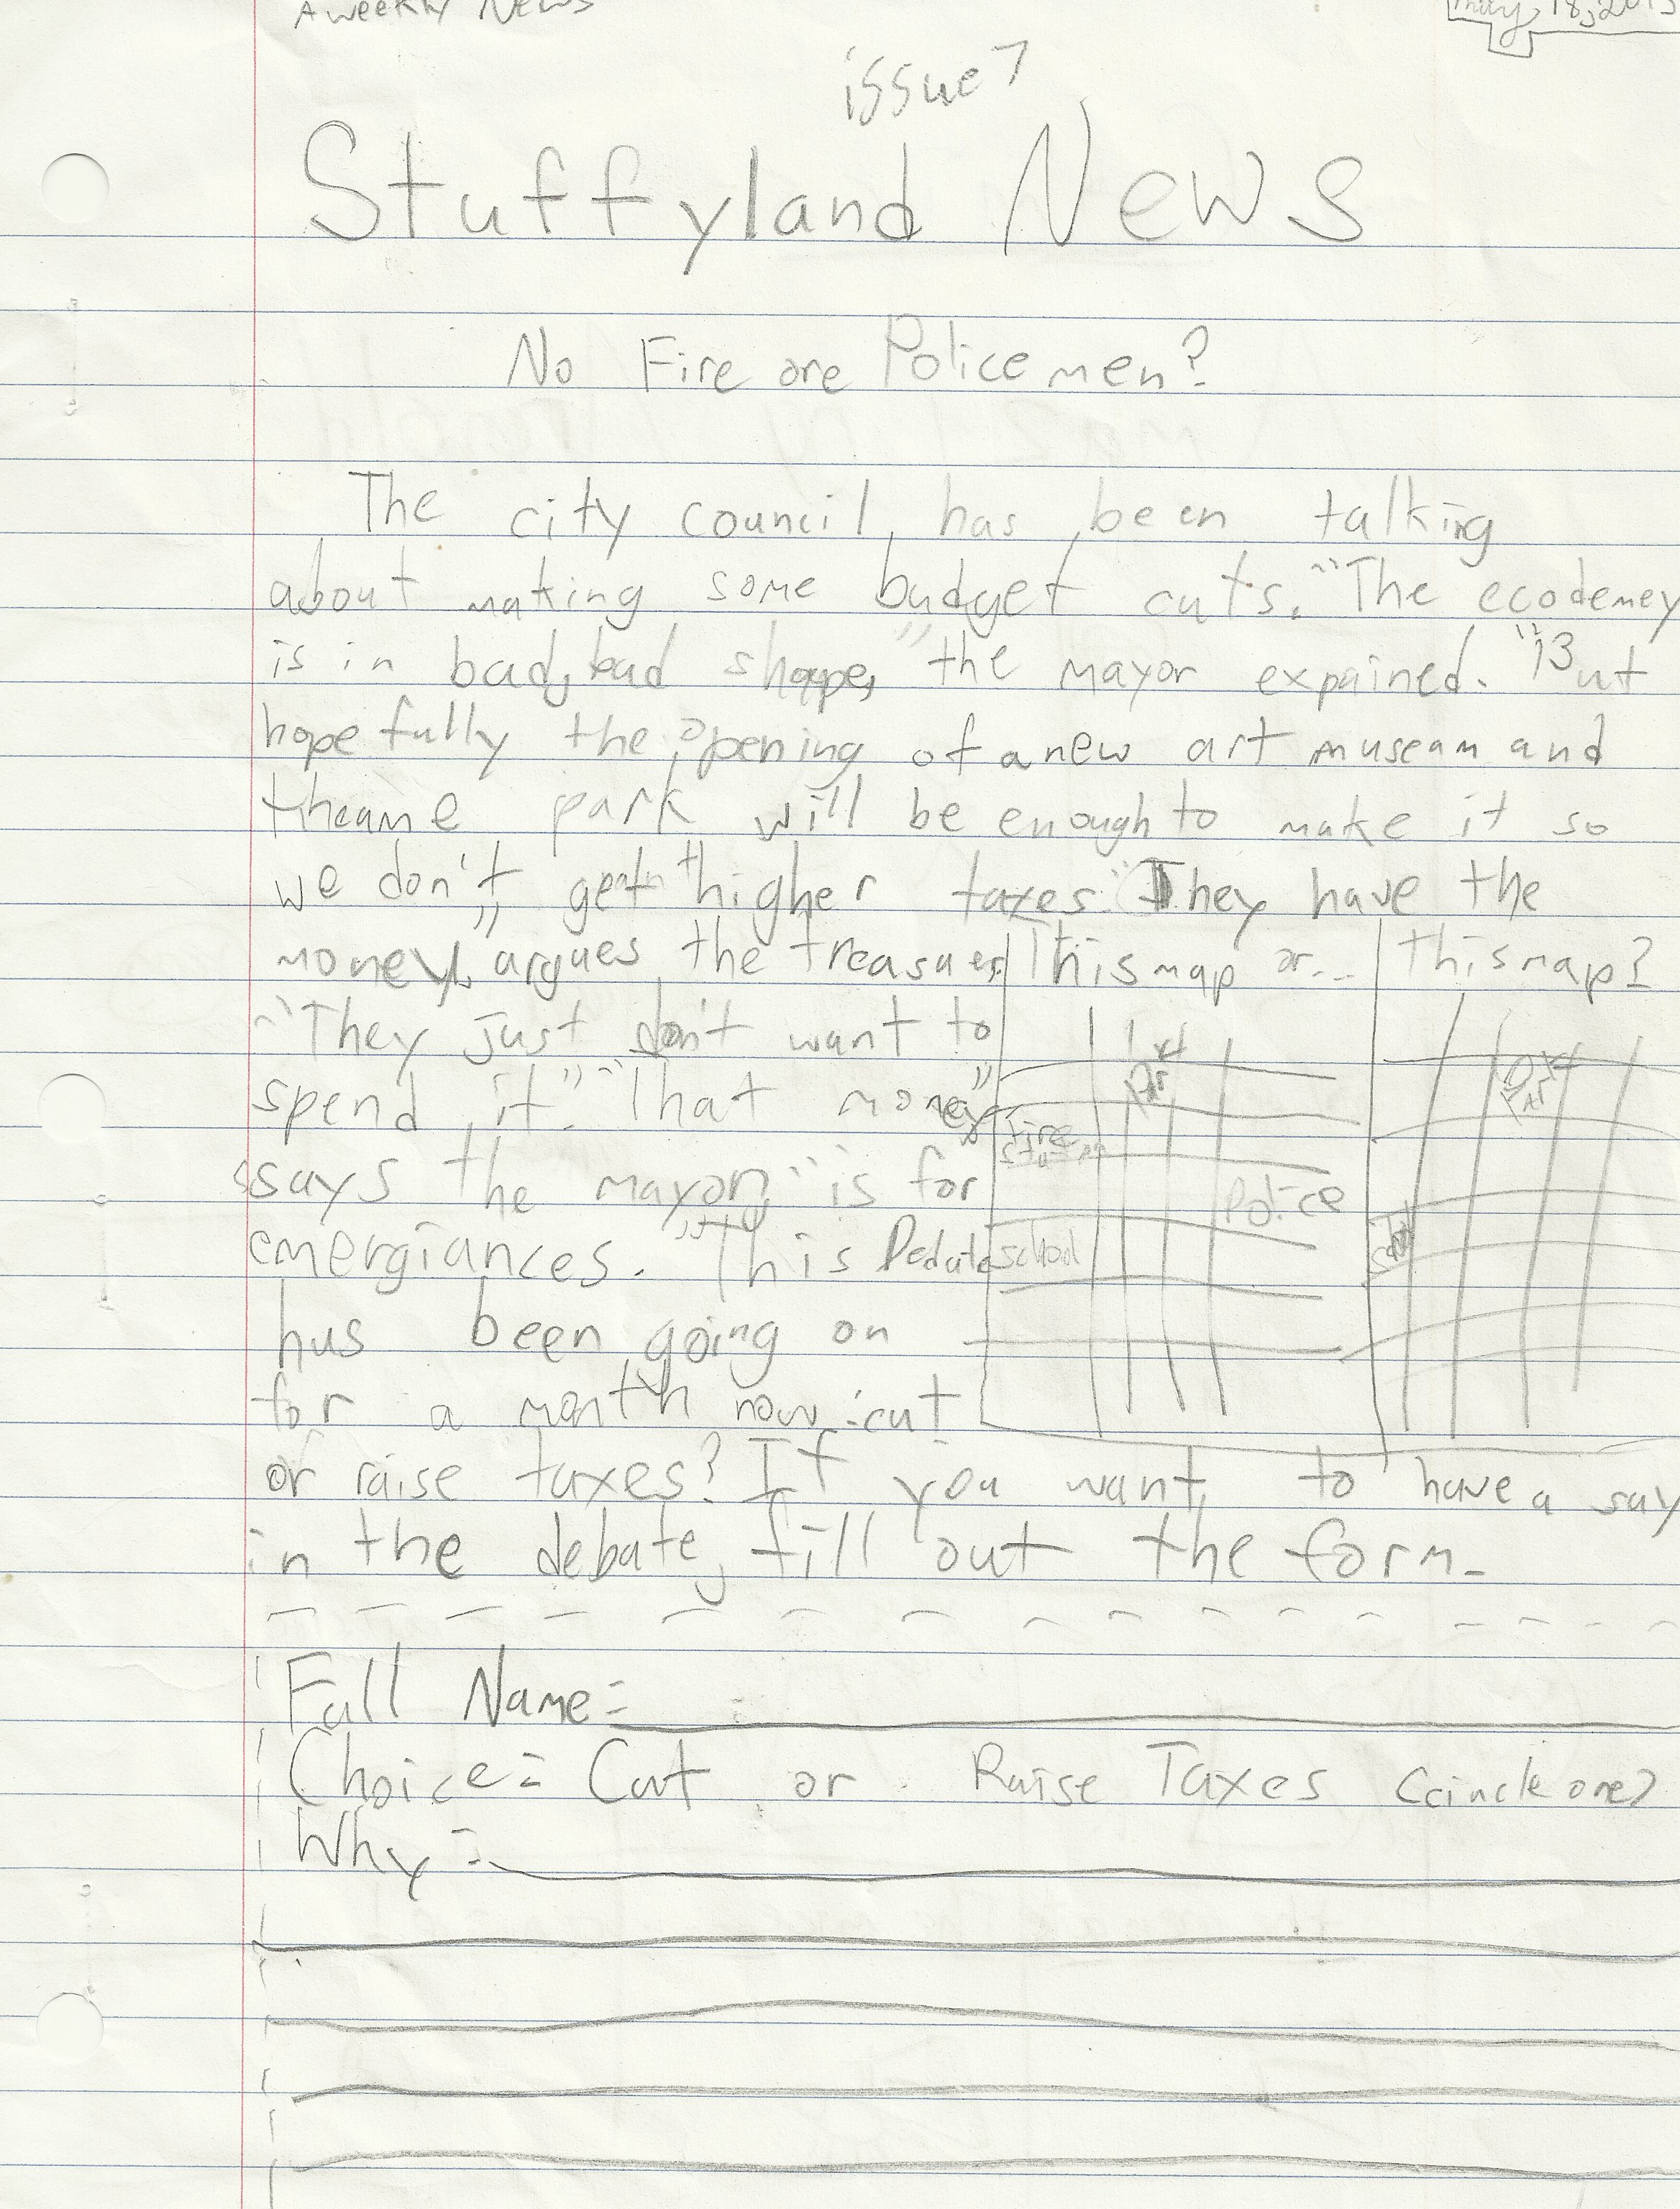 A weekly News
May, 18, 201
issue 7
Stuffyland News
No Fire ore Policemen?
The city council, has been talking
about making some budget cuts. "The ecodemey
is in bad, bad shape," the mayor expained. "But
hopefully the opening of a new art museam and
theame park will be enough to make it so
we don't get higher taxes." "They have the
money," argues the treasuer,
"They just don't want to
spend it." "That money"
says the mayor, "is for
emergiances." This Dedate
hus been going on
for a month now: cut
or raise taxes? If you want to have a say
in the debate, fill out the form.
This map or...
Park
Fire
Station
Police
School
this map?
Park
School
Full Name:
Choice: Cut or Raise Taxes (cirlcle one)
Why: